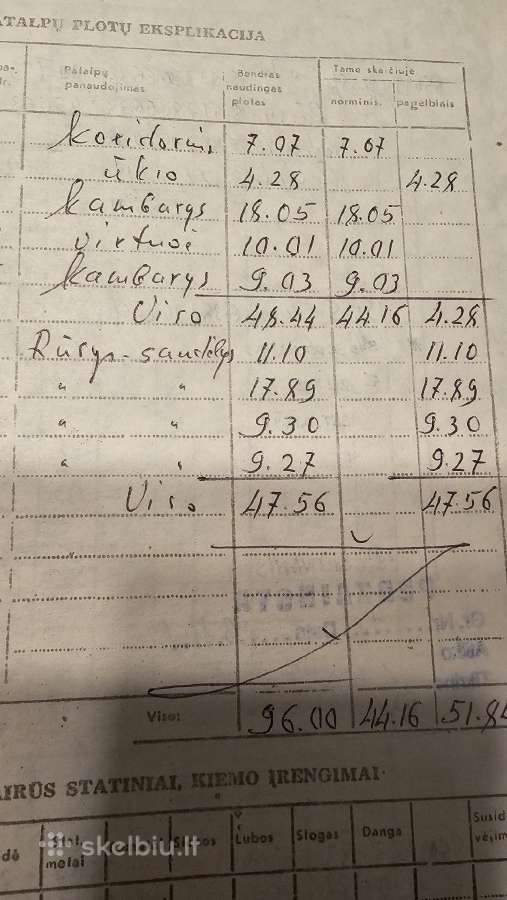 ATALPŲ PLOTŲ EKSPLIKACIJA
Patalpų panaudojimas
Bendras naudingas plotas
Tame skaičiuje
norminis.
pagelbinis
Koridorius 7.07 7.07
ūkio 4.28 4.28
Kambarys 18.05 18.05
virtuvė 10.01 10.01
Kambarys 9.03 9.03
Viso 48.44 44.16 4.28
Rūsys-sandėlys 11.10 11.10
" " 17.89 17.89
" " 9.30 9.30
" " 9.27 9.27
Viso 47.56 47.56
Viso: 96.00 44.16 51.84
AIRŪS STATINIAI, KIEMO ĮRENGIMAI
dė
matai
Lubos
Stogas
Danga
skelbiu.lt